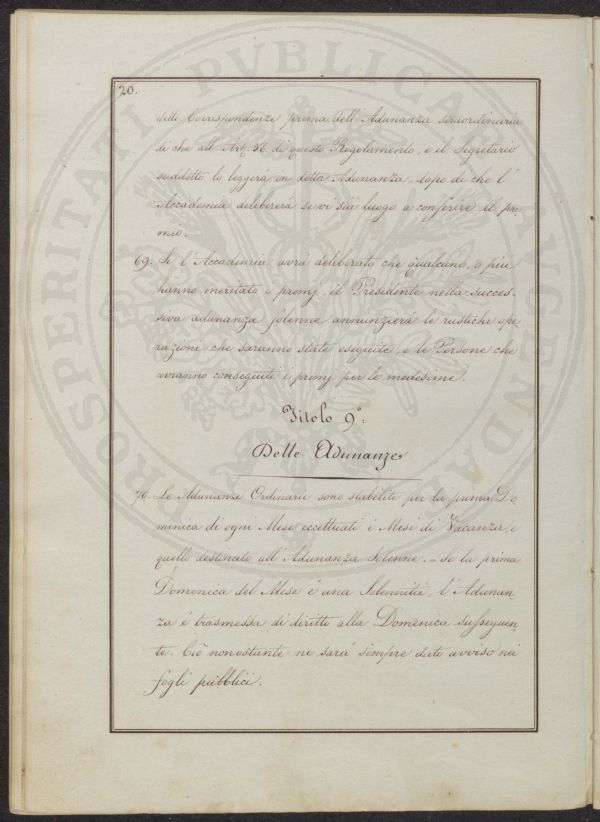 20.
delle Corrispondenze prima dell'Adunanza straordinaria
di che all'Art. 56. di questo Regolamento, e il Segretario
suddetto lo leggerà in detta Adunanza, dopo di che l'
Accademia delibererà se vi sia luogo a conferire il pre
mio.
69. Se l'Accademia avrà deliberato che qualcuno, o più
hanno meritato i premj, il Presidente nella succes-
siva adunanza solenne annunzierà le rustiche ope
razioni che saranno state eseguite, e le Persone che
avranno conseguiti i premj per le medesime.
Titolo 9°:
Delle Adunanze
70. Le Adunanze Ordinarie sono stabilite per la prima Do
minica di ogni Mese eccettuati i Mesi di Vacanza, e
quelli destinati all'Adunanza Solenne. = Se la prima
Domenica del Mese è una Solennità, l'Adunan
za è trasmessa di diritto alla Domenica susseguen
te. Ciò nonostante ne sarà sempre dato avviso nei
fogli pubblici.
PROSPERITATI PVBLICAE AVGENDAE